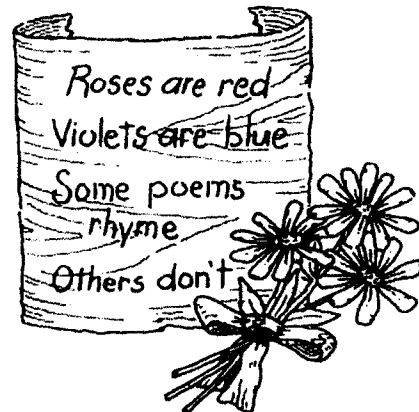 Roses are red
Violets are blue
Some poems
rhyme
Others don't